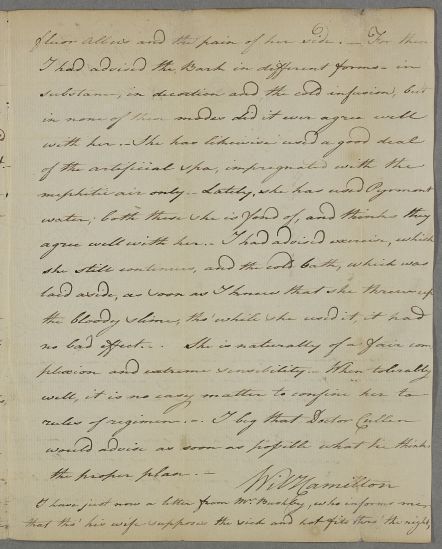 fluor Albus and the pain of her side. — For these
I had advised the Bark in different forms - in
substance, in decoction and the cold infusion, but
in none of these modes did it ever agree well
with her. - She has likewise used a good deal
of the artificial spa, impregnated with the
mephitic air only - Lately, she has used Pyrmont
water; both these she is fond of, and thinks they
agree well with her. - I had advised exercise, which
she still continues, and the cold bath, which was
laid aside, as soon as I knew that she threw up
the bloody slime, tho' while she used it, it had
no bad effect. - She is naturally of a fair com
plexion and extreme sensibility - When tolerably
well, it is no easy matter to confine her to
rules of regimen. - I beg that Doctor Cullen
would advise as soon as possible what he thinks
the proper plan. -
Wil Hamilton
I have just now a letter from Mr. Bushby, who informs me
that tho' his wife supposes the sick and hot fits thro' the night,